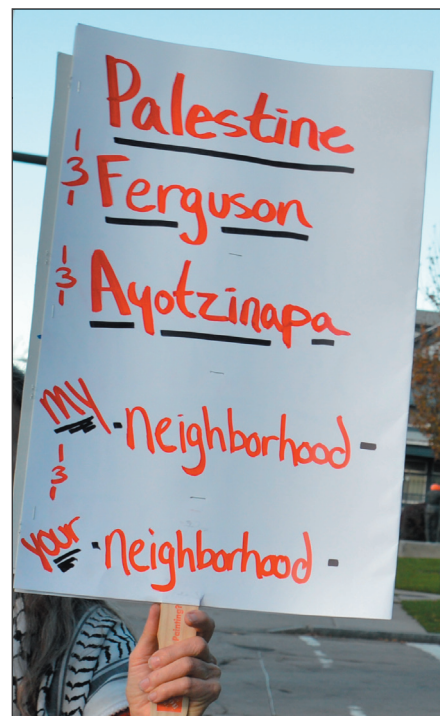 Palestine
& Ferguson
& Ayotzinapa
my neighborhood
&
your neighborhood